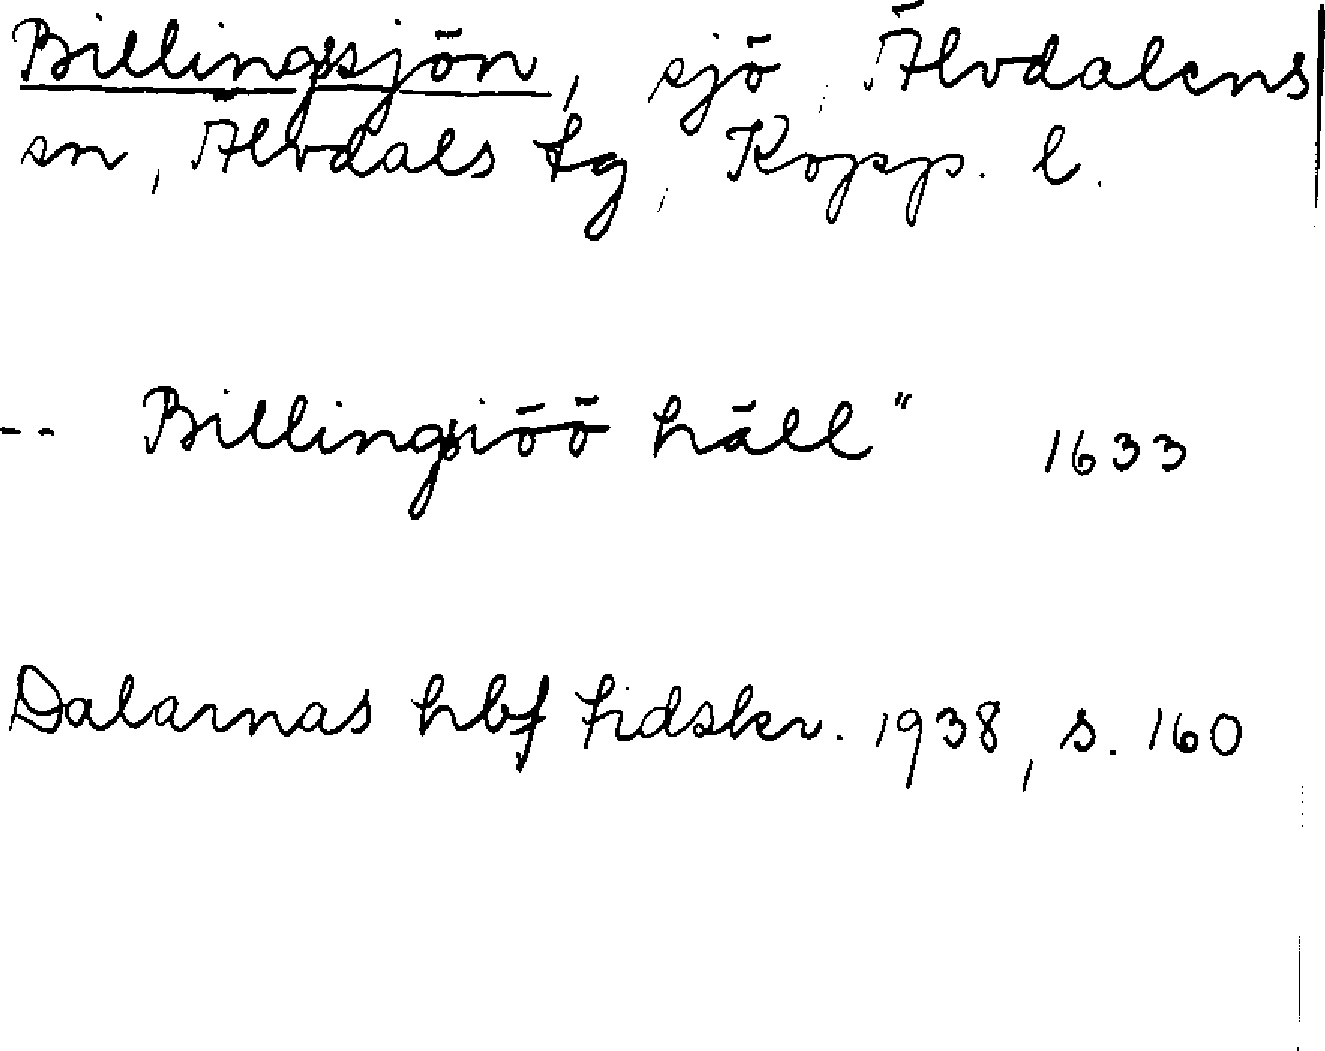 Billingsjön, sjö, Älvdalens
sn, Älvdals tg, Kopp. l.
-- Billingsiöö häll" 1633
Dalarnas hbf tidskr. 1938, s. 160